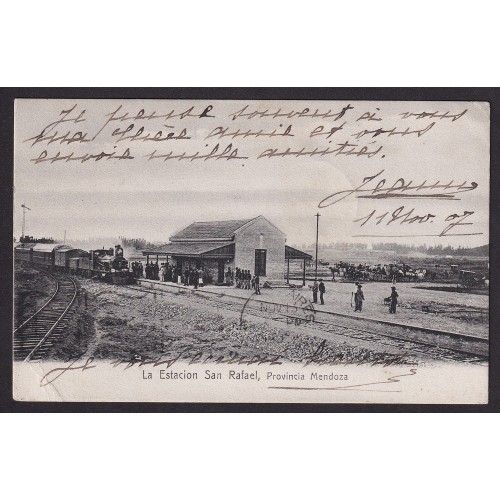 Je pense souvent à vous
ma chère amie et vous
envoie mille amitiés.
Jeanne
11 Nov. 07
Je vous
La Estacion San Rafael, Provincia Mendoza